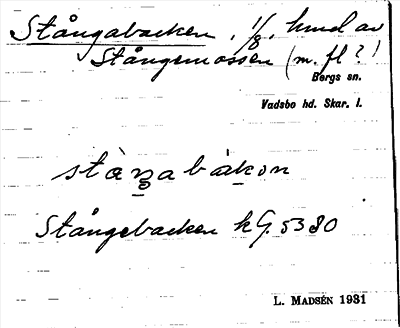 Stångabacken, 1/8, hmd av
Stångemossen (m. fl ?)
Bergs sn.
Vadsbo hd. Skar. l.
stàŋabàkon
Stångebacken kG. 53 80
L. MADSÉN 1931